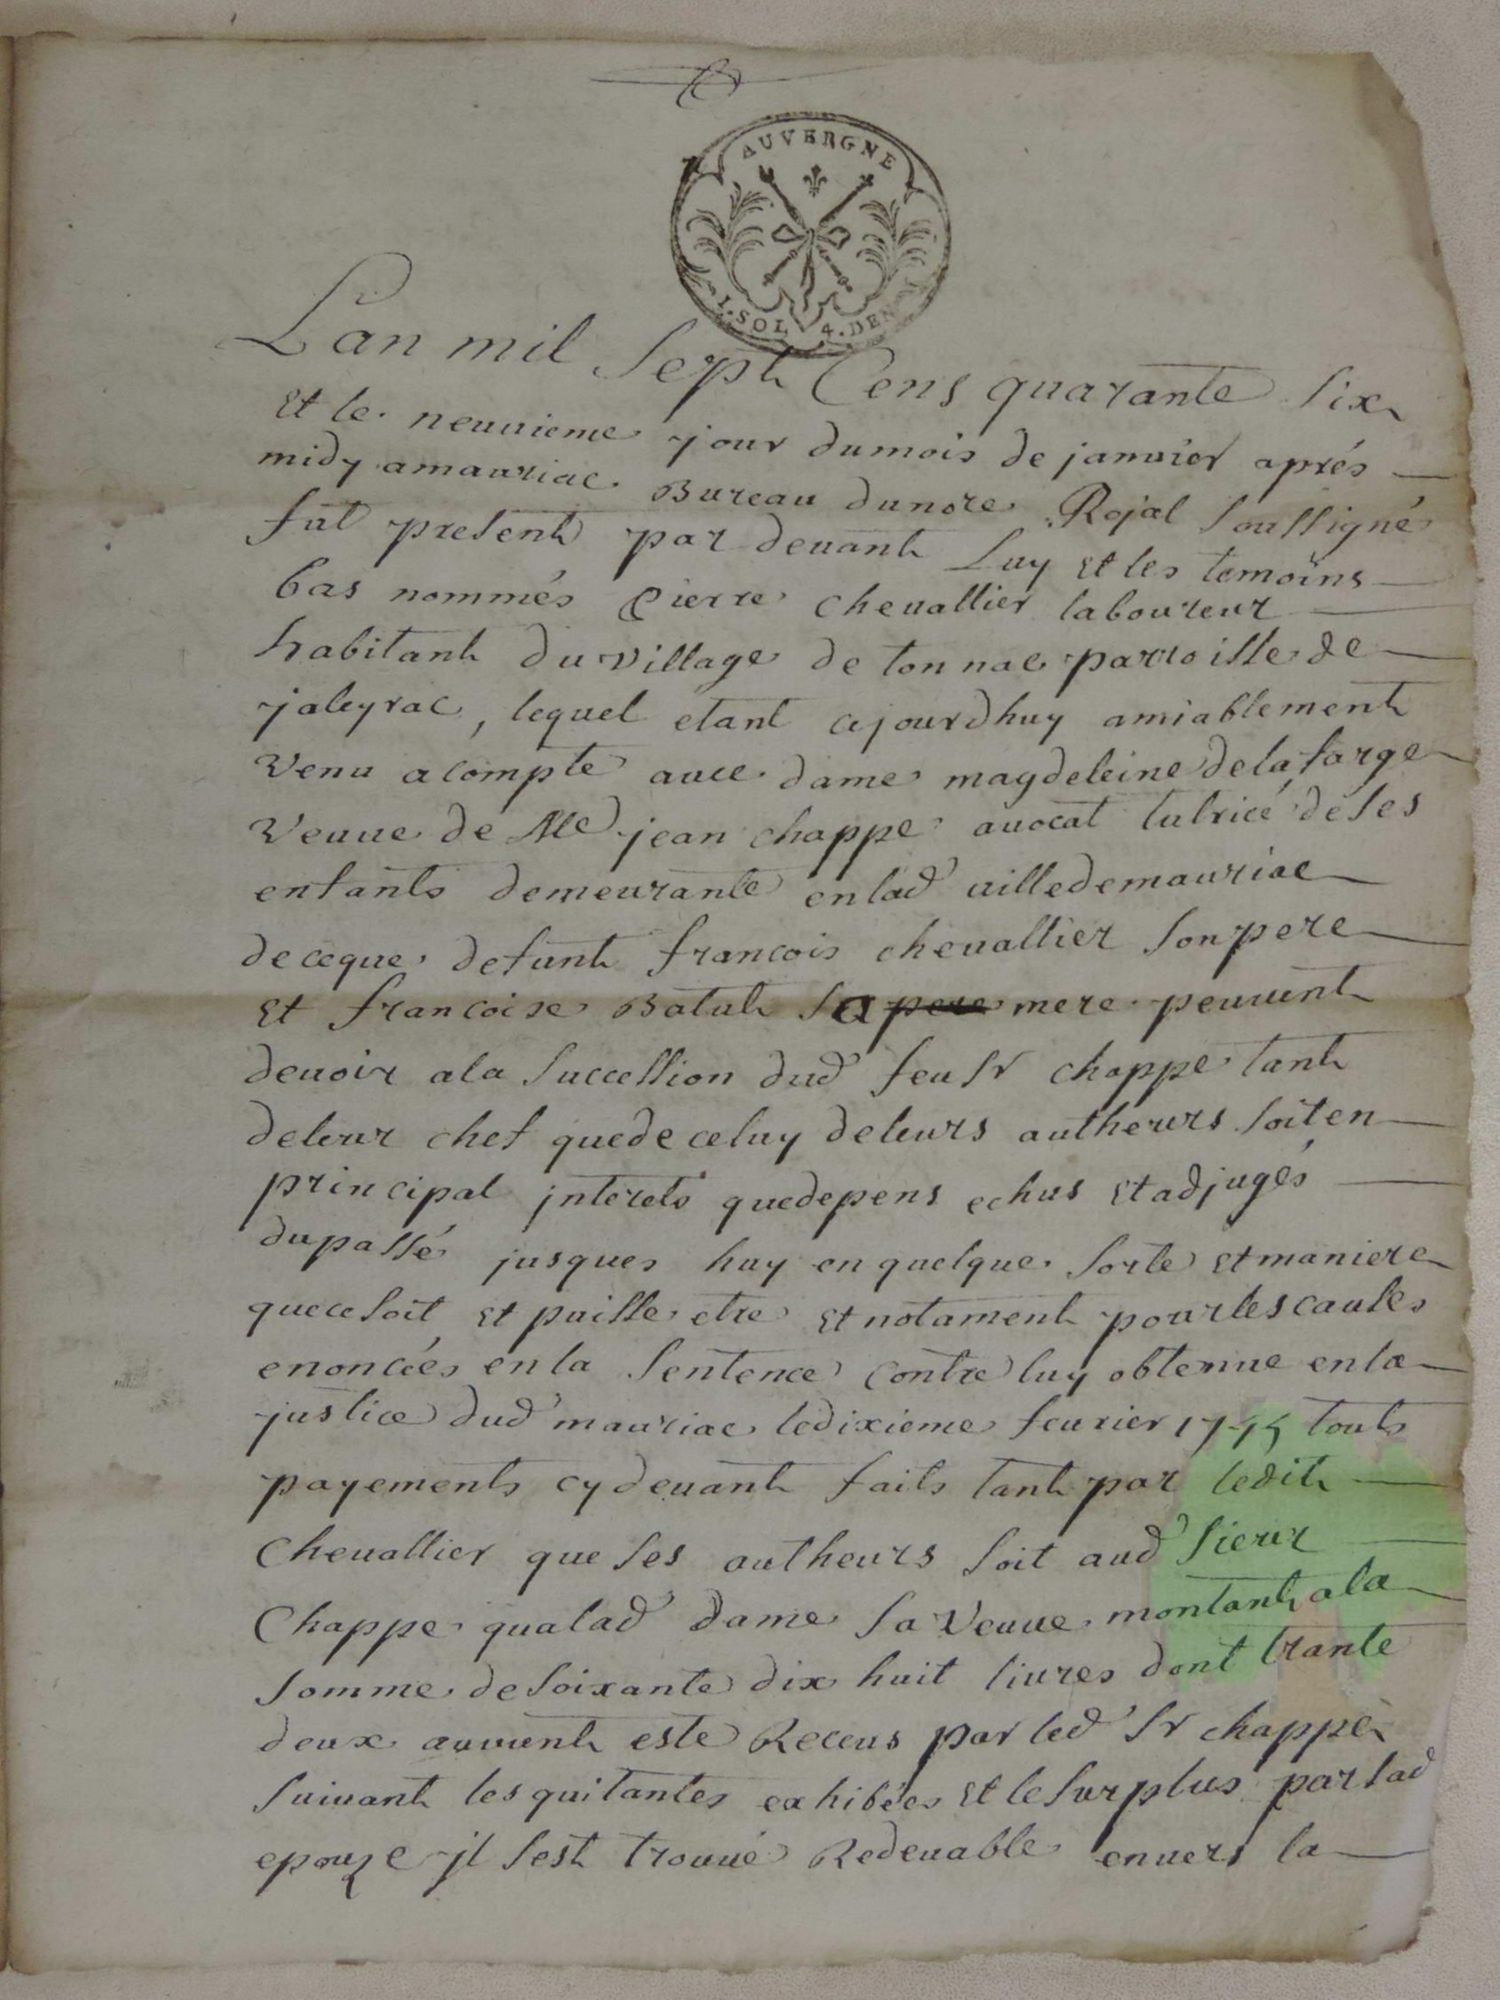 AUVERGNE
1. SOL 4. DEN.
L'an mil Sept Cens quarante Six
Et le neuvieme jour dumois de janvier aprés
midy amauriac Bureau dunore Rojal Soussigné
fut present par devant Luy et les temoins
bas nommés Pierre chevallier laboureur
habitant du village de tonnac parroisse de
jaleyrac, lequel etant cejourdhuy amiablement
Venu acompte avec dame magdeleine delafarge
Veuve de Me jean chappe avocat tutrice de ses
enfants demeurante enlad ville demauriac
deceque defunt francois chevallier Sonpere
Et francoise Batut Sa pere mere peuvent
devoir ala Succession dud feu Sr chappe tant
deleur chef quede celuy deleurs autheurs Soit en
principal jnterets quedepens echus Etadjugés
dupassé jusques huy en quelque Sorte Etmaniere
queceSoit Et puisse etre Et notament pour les causes
enoncées en la Sentence contre luy obtenue en la
justice dud mauriac ledixieme fevrier 1745 touts
payements cydevant faits tant par ledit
Chevallier que Ses autheurs Soit aud Sieur
Chappe qualad dame Sa Veuve montant ala
Somme deSoixante dix huit livres dont trante
deux auvent este Receus par led Sr chappe
Suivant les quitantes exhibées Et leSurplus par lad
epouze jl Sest trouvé Redevable envers la